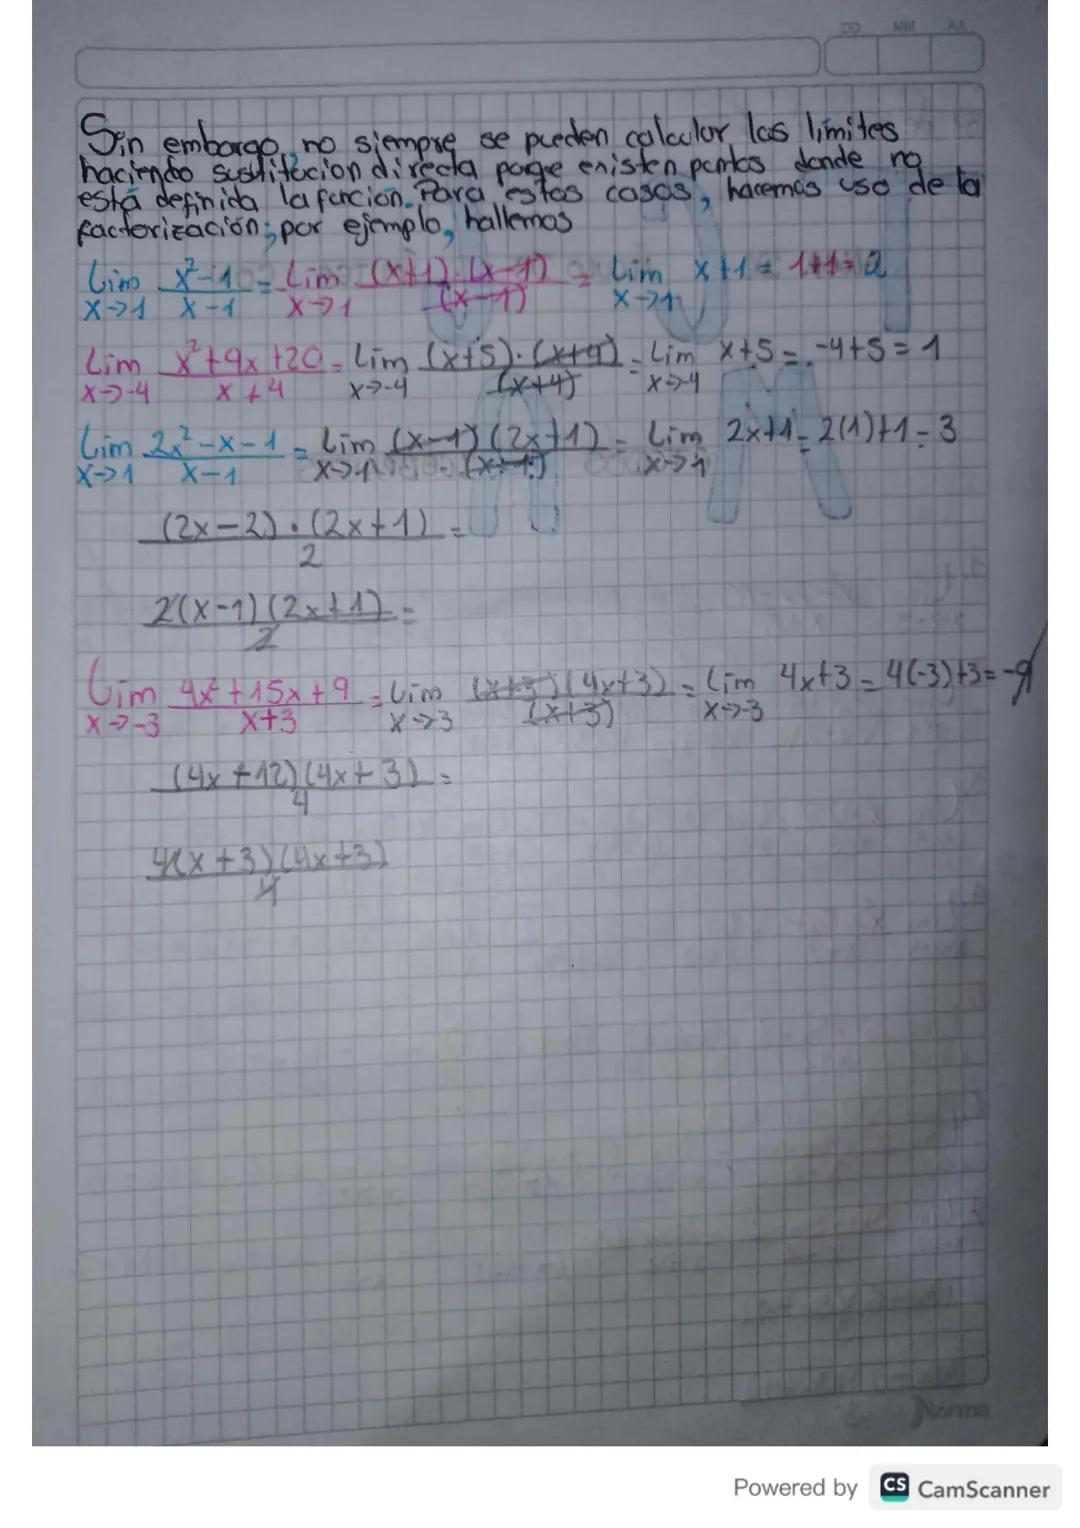 DD MM AA
Sin embargo, no siempre se pueden calcular los límites
haciendo sustitucion directa porque existen puntos donde no
está definida la funcion. Para estos casos, hacemos uso de la
factorización; por ejemplo, hallemos
Lim x→1 (x²-1)/(x-1) = Lim x→1 (x+1)·(x-1)/(x-1) = Lim x→1 x+1 = 1+1=2
Lim x→-4 (x²+9x+20)/(x+4) = Lim x→-4 (x+5)·(x+4)/(x+4) = Lim x→-4 x+5 = -4+5=1
Lim x→1 (2x²-x-1)/(x-1) = Lim x→1 (x-1)(2x+1)/(x-1) = Lim x→1 2x+1 = 2(1)+1=3
(2x-2)·(2x+1)/2 =
2(x-1)(2x+1)/2 =
Lim x→-3 (4x²+15x+9)/(x+3) = Lim x→3 (x+3)(4x+3)/(x+3) = Lim x→-3 4x+3 = 4(-3)+3=-9
(4x+12)(4x+3)/4 =
4(x+3)(4x+3)/4
Norma
Powered by CS CamScanner